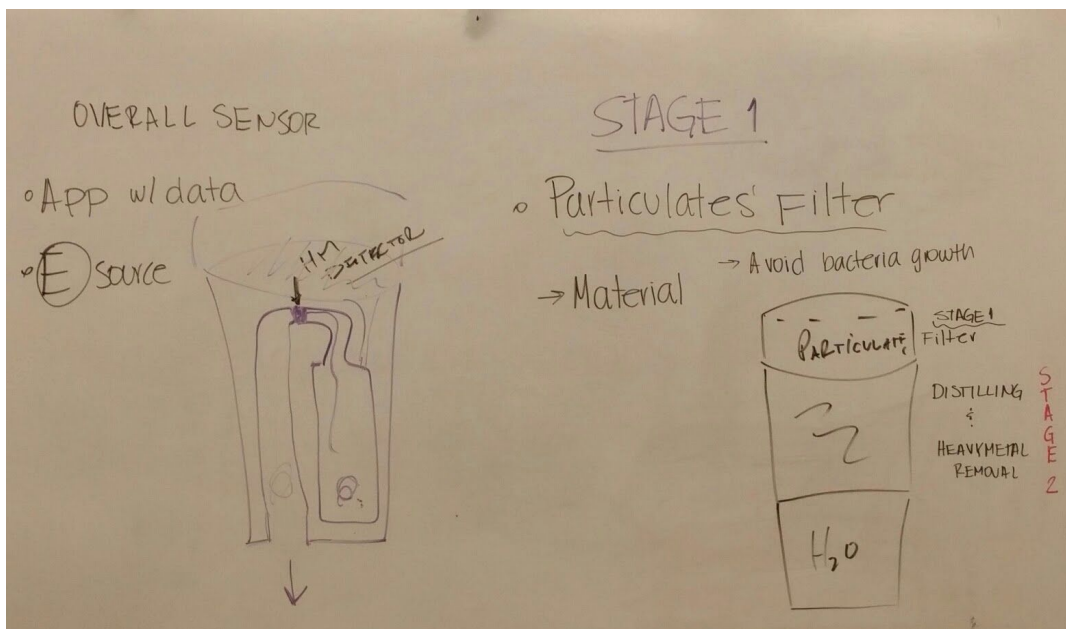 OVERALL SENSOR
App w/ data
E source
HM
DETECTOR
STAGE 1
Particulates' Filter
→ Avoid bacteria growth
→ Material
PARTICULATE
STAGE 1
Filter
DISTILLING
&
HEAVYMETAL
REMOVAL
STAGE 2
H₂O